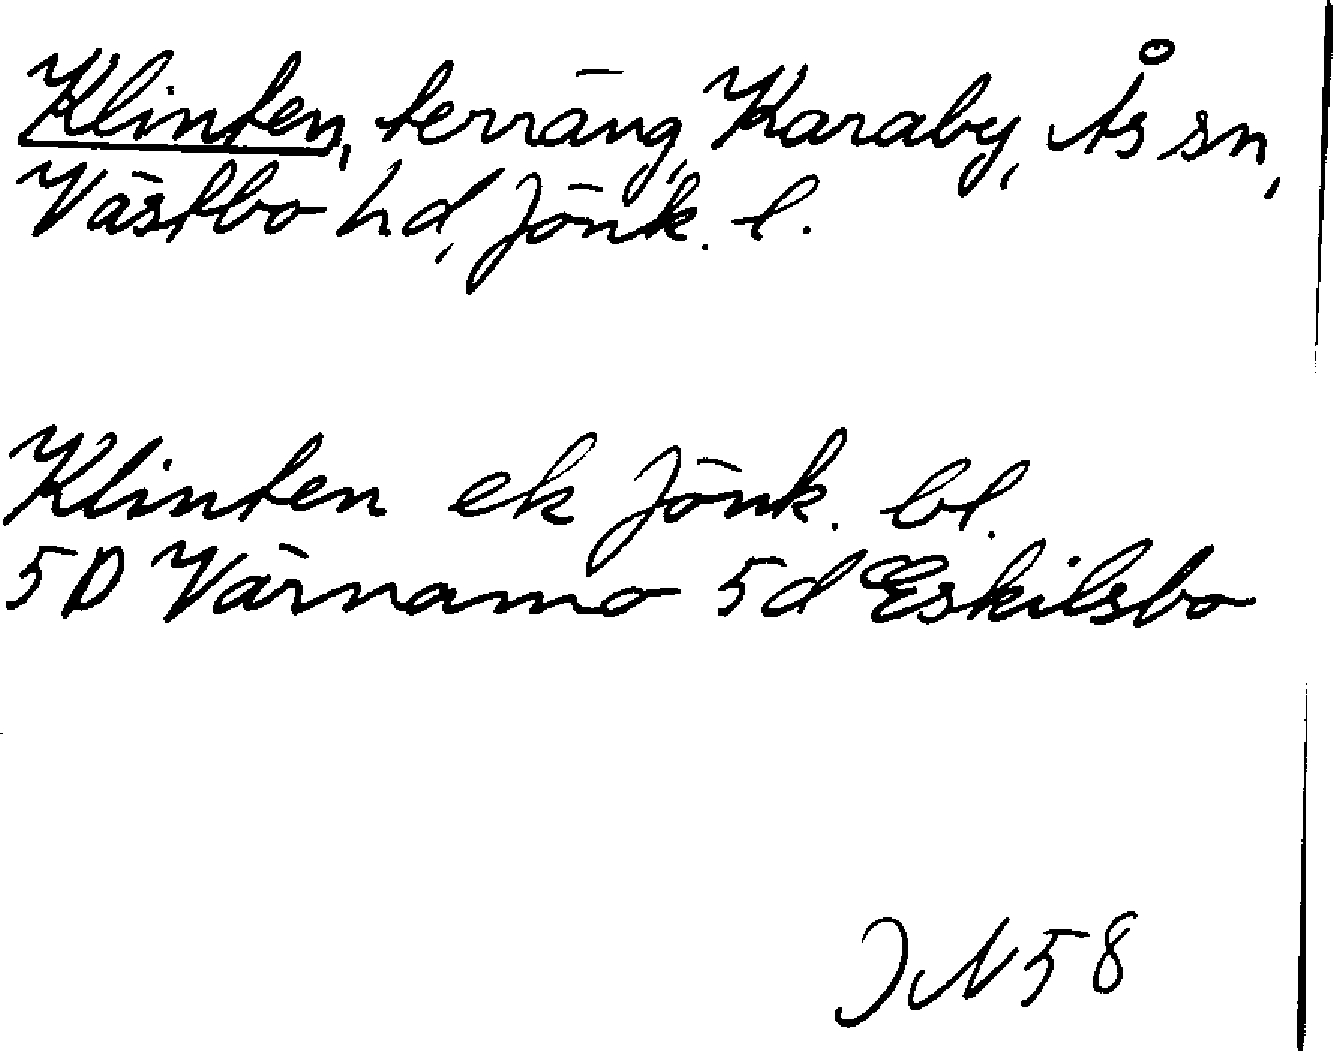 Klinten, terräng, Karaby, Ås sn,
Västbo hd, Jönk. l.
Klinten ek Jönk. bl.
5D Värnamo 5d Eskilsbo
JN 58